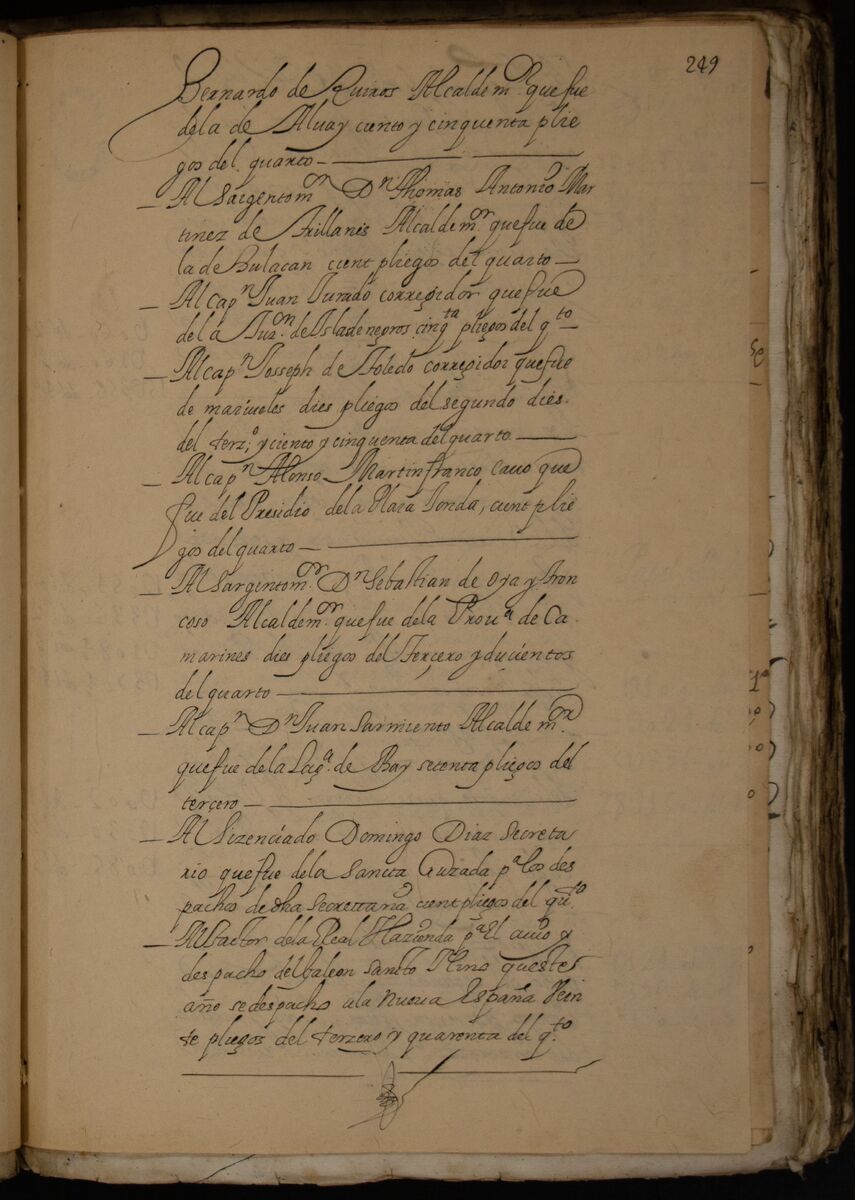 249
Bernardo de Quiros Alcalde mor. que fue
dela de Aluay ciento y cinquenta plie
gos del quarto
Al Sargento mor. Dn Thomas Antonio Mar
tinez de Arillanis Alcalde mor. que fue de
la de Bulacan cient pliegos del quarto
Al Capn Juan Jurado corregidor que fue
de la Juron. de Isla de negros cinqta pliegos del qto
Al capn Josseph de Toledo corregidor que fue
de mariueles dies pliegos del segundo dies
del terzo. y ciento y cinquenta del quarto
Al capn Alonso Martin franco cauo que
fue del Presidio de la Plaza, cient plie
gos del quarto
Al Sargento mor. Dn Sebastian de Oya y Tron
coso Alcalde mor. que fue dela Proua de Ca
marines dies pliegos del Tercero y ducientos
del quarto
Al capn Dn Juan Sarmiento Alcalde mor.
que fue de la Laga. de Bay setenta pliegos del
tercero
Al Lizenciado Domingo Diaz Secreta
rio que fue dela Sancta Cruzada pa los des
pachos de dha Secrettaria cient pliegos del quto
Al factor dela Real Hazienda pa El auio y
despacho del Galeon Sancto Nino que este
año se despacho ala Nueua España Vein
te pliegos del terzero y quarenta del qto.